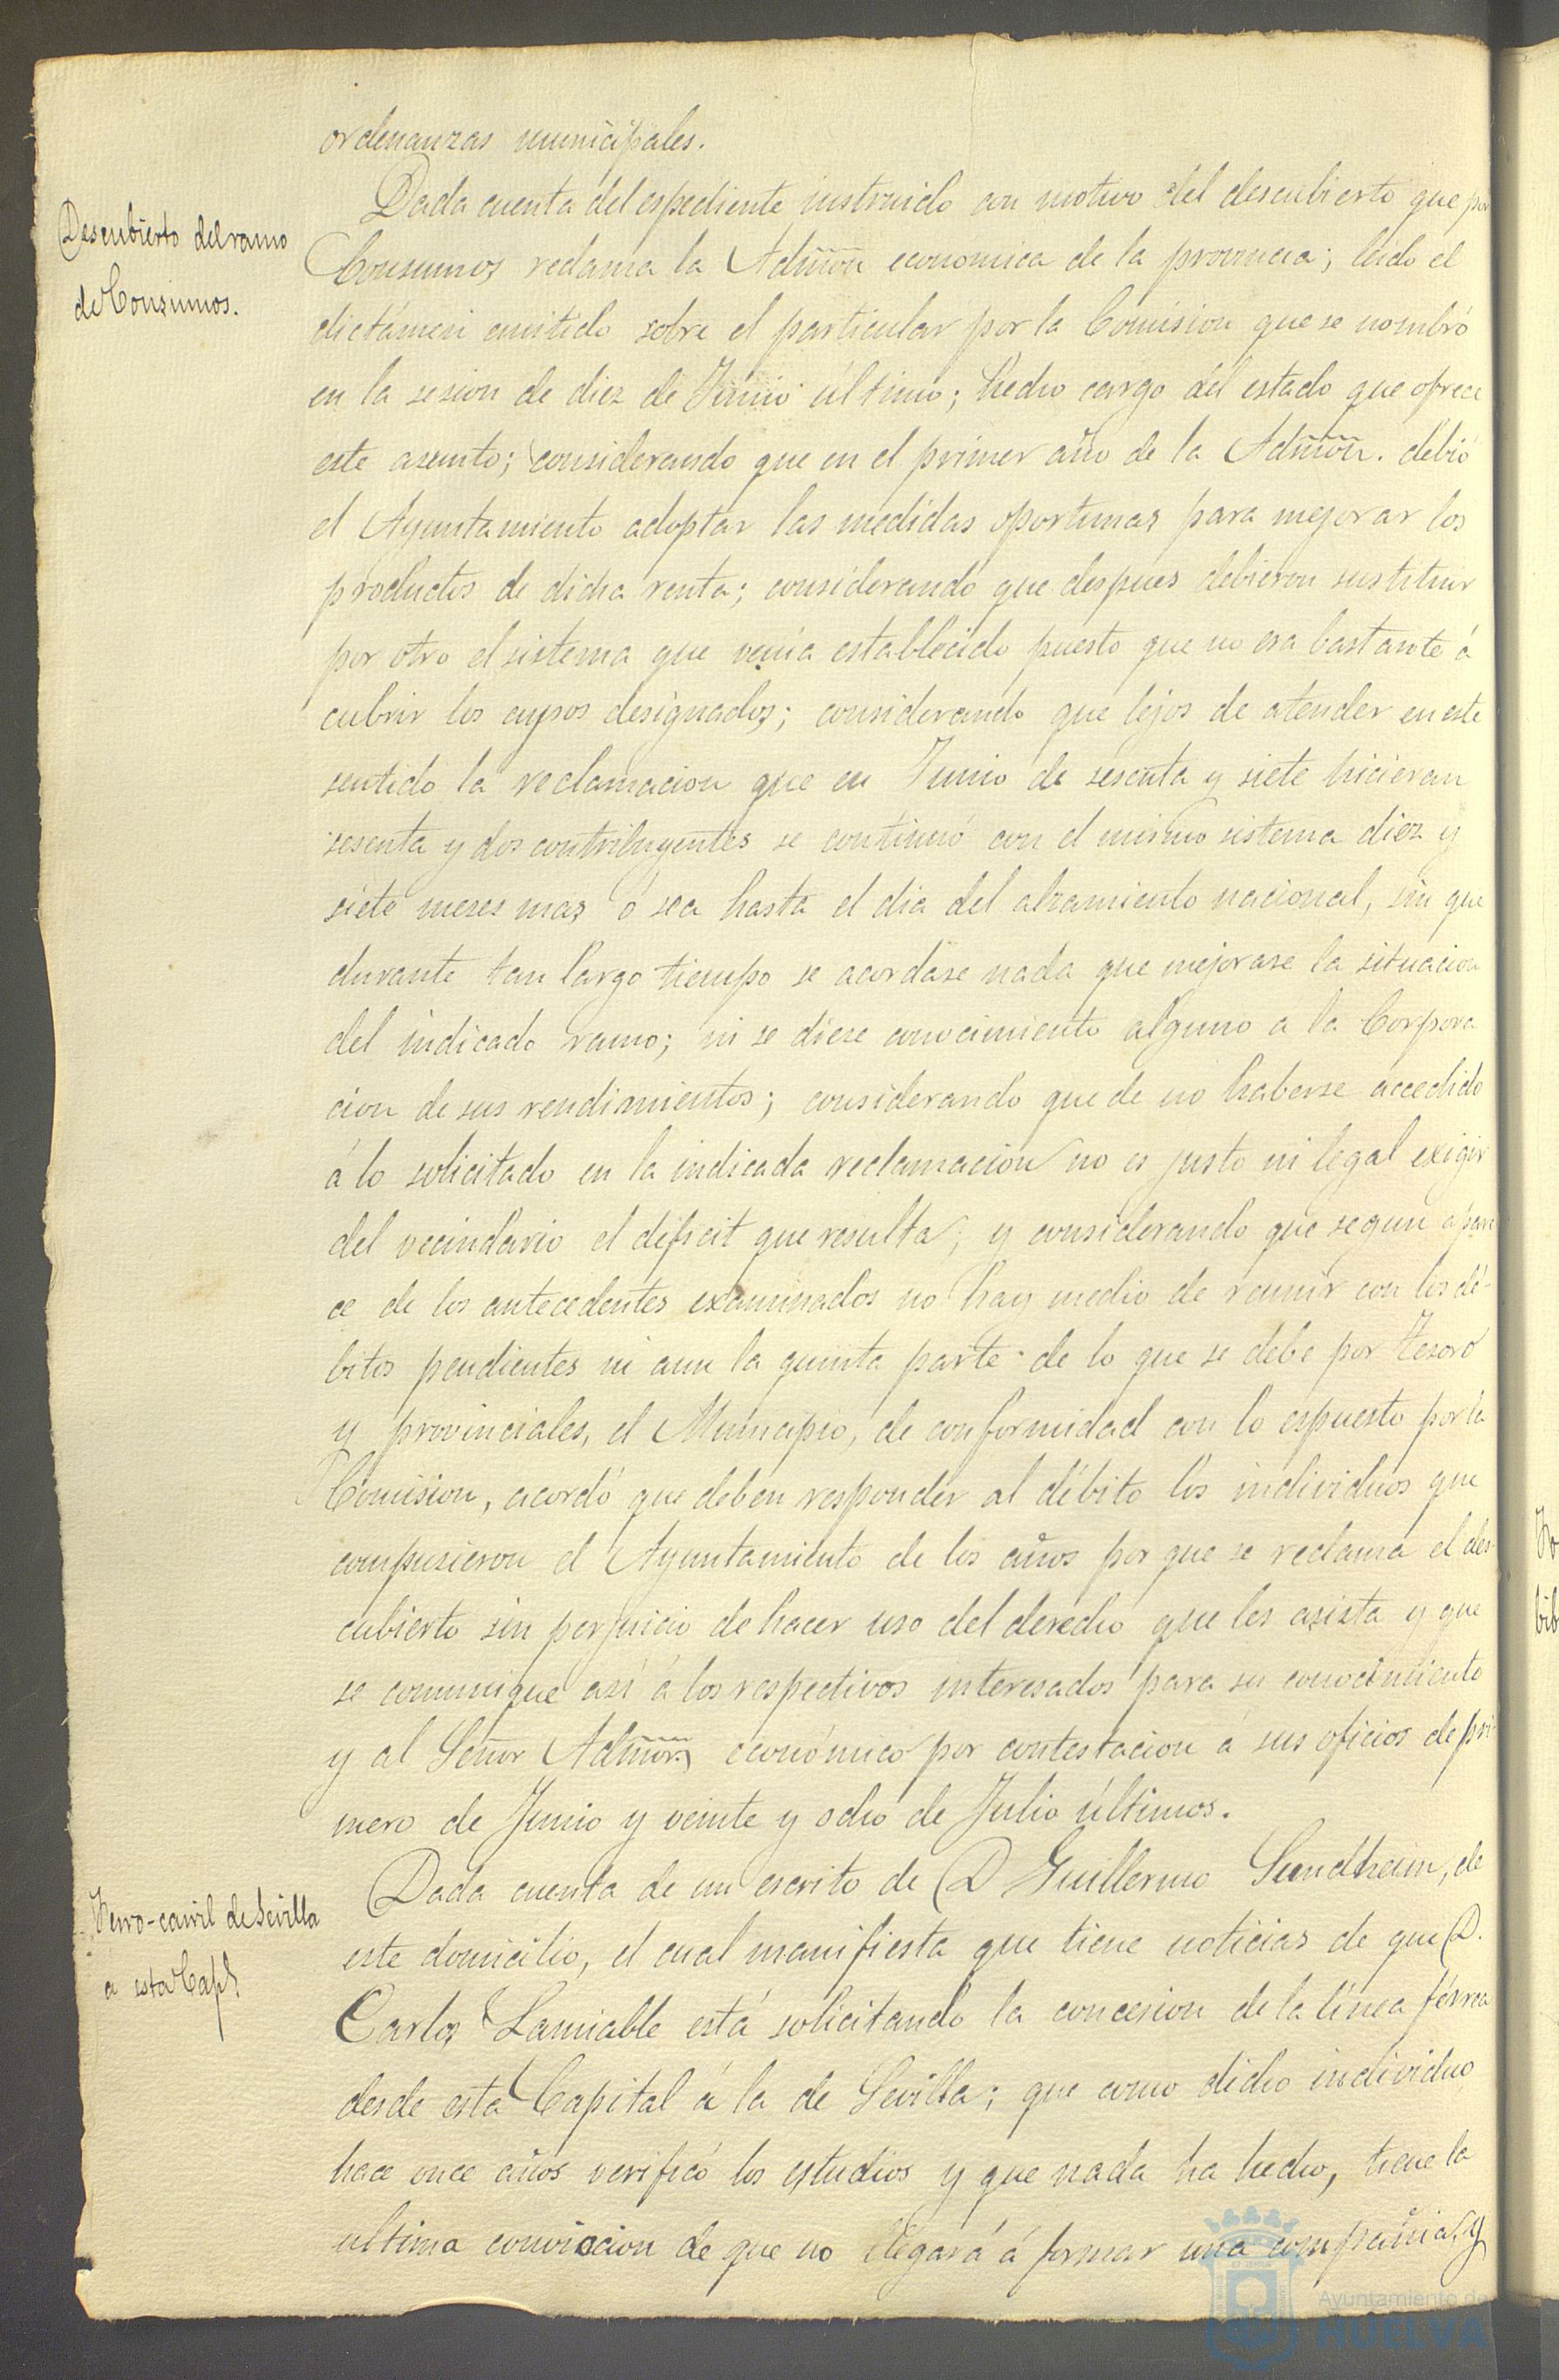 ordenanzas municipales.
Descubierto del ramo
de Consumos.
Dada cuenta del espediente instruido con motivo del descubierto que por
Consumos reclama la Admon economica de la provincia; leido el
dictámen emitido sobre el particular por la Comision que se nombró
en la sesion de diez de Junio último; hecho cargo del estado que ofrece
este asunto; considerando que en el primer año de la Admon. debió
el Ayuntamiento adoptar las medidas oportunas para mejorar los
productos de dicha renta; considerando que despues debieron sustituir
por otro el sistema que venia establecido puesto que no era bastante á
cubrir los cupos designados; considerando que lejos de atender en este
sentido la reclamacion que en Junio de sesenta y siete hicieran
sesenta y dos contribuyentes se continuó con el mismo sistema diez y
siete meses mas ó sea hasta el dia del alzamiento nacional, sin que
durante tan largo tiempo se acordase nada que mejorase la situacion
del indicado ramo; ni se diese conocimiento alguno a la Corpora
cion de sus rendimientos; considerando que de no haberse accedido
á lo solicitado en la indicada reclamacion no es justo ni legal exigir
del vecindario el déficit que resulta; y considerando que segun apare
ce de los antecedentes examinados no hay medio de reunir con los dé-
bitos pendientes ni aun la quinta parte de lo que se debe por Tesoro
y provinciales, el Municipio, de conformidad con lo espuesto por la
Comision, acordó que deben responder al débito los individuos que
compusieron el Ayuntamiento de los años por que se reclama el des
cubierto sin perjuicio de hacer uso del derecho que les asista y que
se comunique así á los respectivos interesados para su conocimiento
y al Señor Admor económico por contestacion á sus oficios de pri
mero de Junio y veinte y ocho de Julio últimos.
Ferro-carril de Sevilla
a esta Capl.
Dada cuenta de un escrito de D Guillermo Sundheim, de
este domicilio, el cual manifiesta que tiene noticias de que D.
Carlos Lamiable está solicitando la concesion de la línea férrea
desde esta Capital á la de Sevilla; que como dicho individuo
hace once años verificó los estudios y que nada ha hecho, tiene la
ultima conviccion de que no llegará á formar una compañia, y
Ayuntamiento de
HUELVA